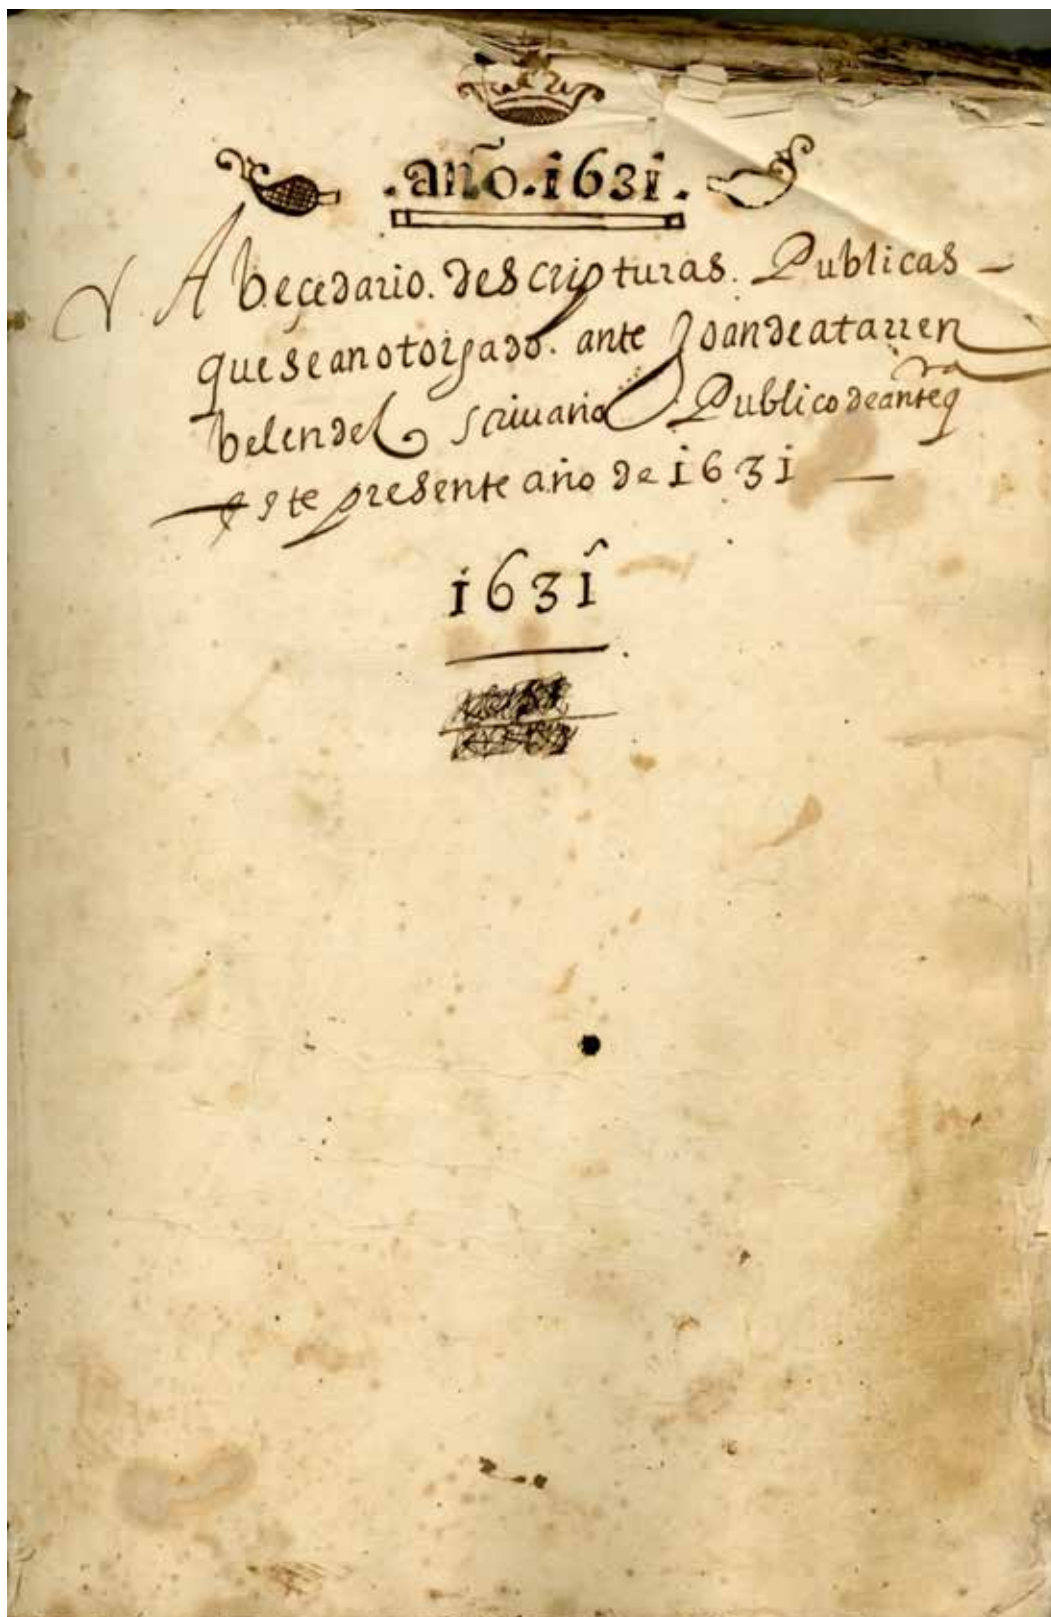 .año.1631.
Abeçedario. descripturas. Publicas
que se an otorgado. ante Joan de atarren
belendel scriuano Publico de anteqra
este presente año de 1631
1631